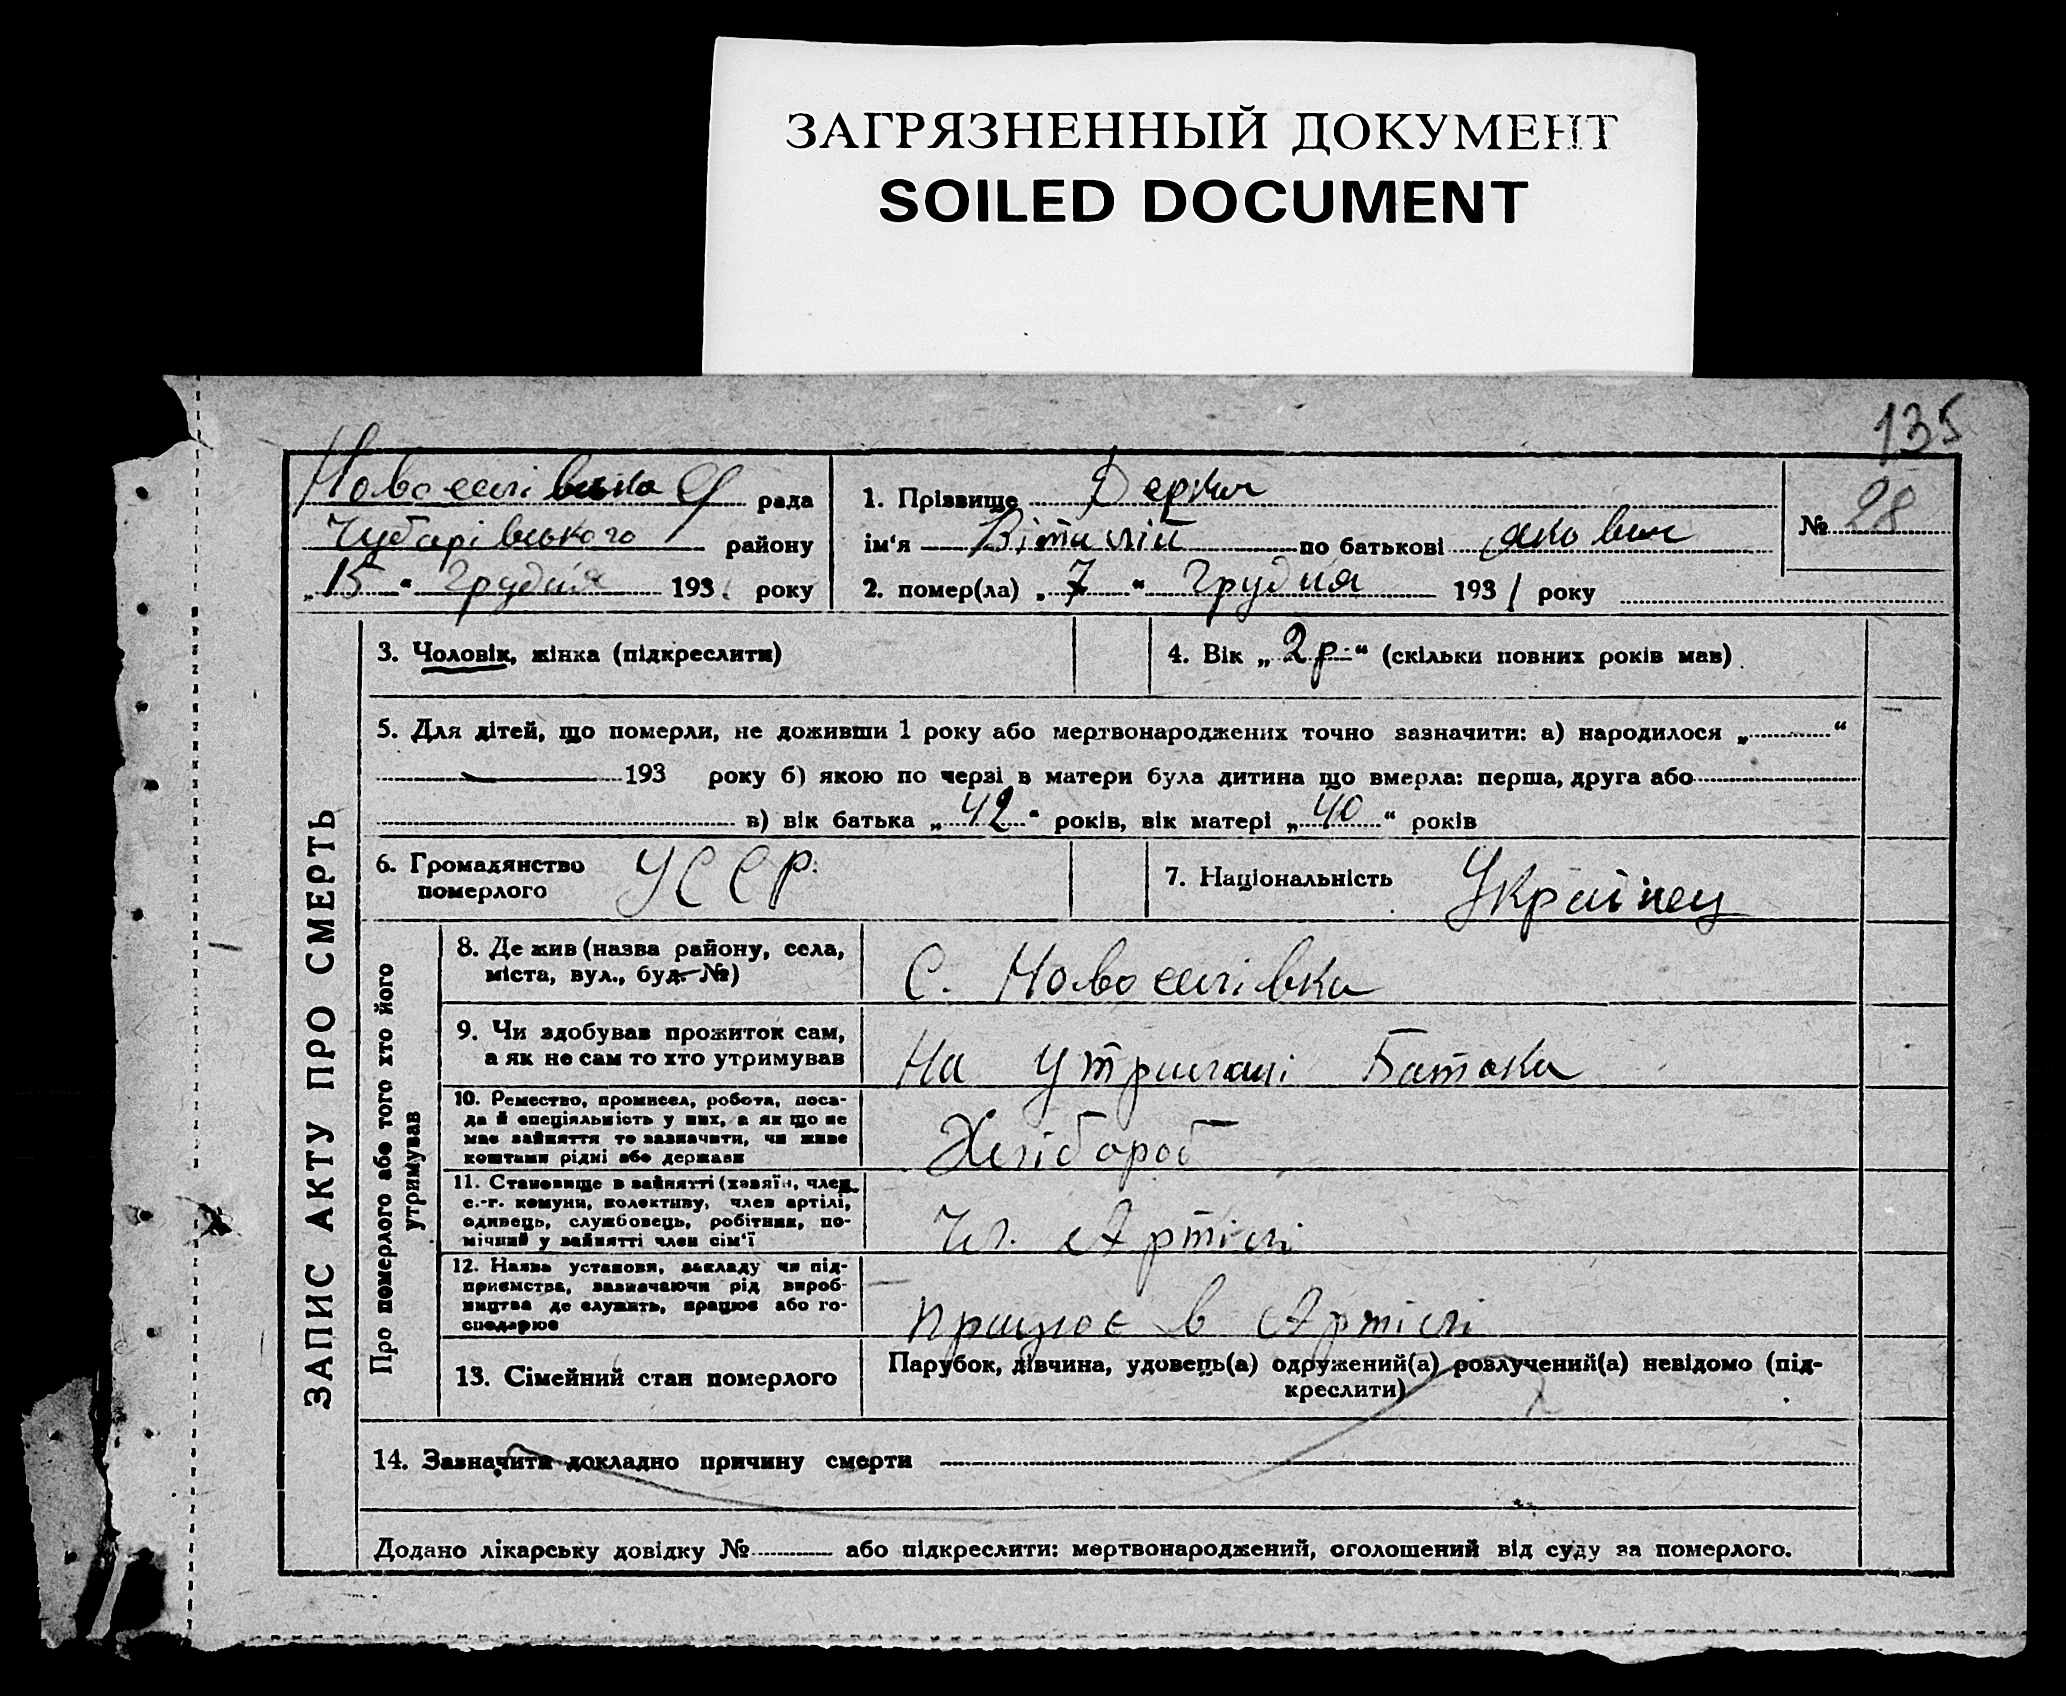 ЗАГРЯЗНЕННЫЙ ДОКУМЕНТ
SOILED DOCUMENT
135
Новоселівська С/ рада
Чубарівського району
„15“ Грудня 193 року
1. Прізвище Деркач
ім'я Віталій по батькові Якович
2. помер(ла) „7“ Грудня 1931 року
№ 28
ЗАПИС АКТУ ПРО СМЕРТЬ
3. Чоловік, жінка (підкреслити)
4. Вік „2 р.“ (скільки повних років мав)
5. Для дітей, що померли, не доживши 1 року або мертвонароджених точно зазначити: а) народилося „ “
193 року б) якою по черзі в матери була дитина що вмерла: перша, друга або
в) вік батька „42“ років, вік матері „40“ років
6. Громадянство
померлого УССР.
7. Національність Українец
Про померлого або того хто його
утримував
8. Де жив (назва району, села,
міста, вул., буд. №)
С. Новоселівка
9. Чи здобував прожиток сам,
а як не сам то хто утримував
На утримані Батька
10. Ремество, промисел, робота, поса-
да й спеціяльність у них, а як що не
має зайняття то зазначити, чи живе
коштами рідні або держави
Хлібороб
11. Становище в зайнятті (хазяїн, член
с.-г. комуни, колективу, член артілі,
одинець, службовець, робітник, по-
мічний у зайнятті член сім'ї
Чл. Артілі
12. Назва установи, закладу чи під-
приємства, зазначаючи рід вироб-
ництва де служить, працює або го-
сподарює
працює в Артілі
13. Сімейний стан померлого
Парубок, дівчина, удовець(а) одружений(а) розлучений(а) невідомо (під-
креслити)
14. Зазначити докладно причину смерти
Додано лікарську довідку № або підкреслити: мертвонароджений, оголошений від суду за померлого.